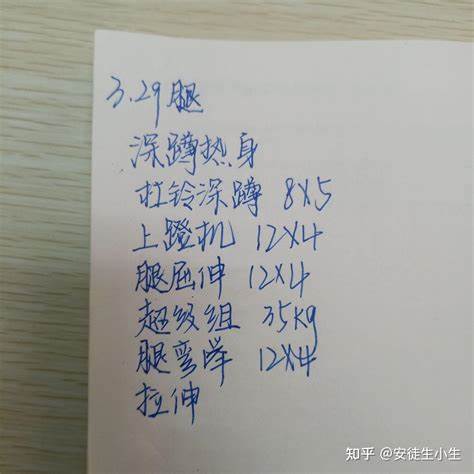 3.29腿
深蹲热身
杠铃深蹲 8X5
上蹬机 12X4
腿屈伸 12X4
超级组 35kg
腿弯举 12X4
拉伸
知乎 @安徒生小生